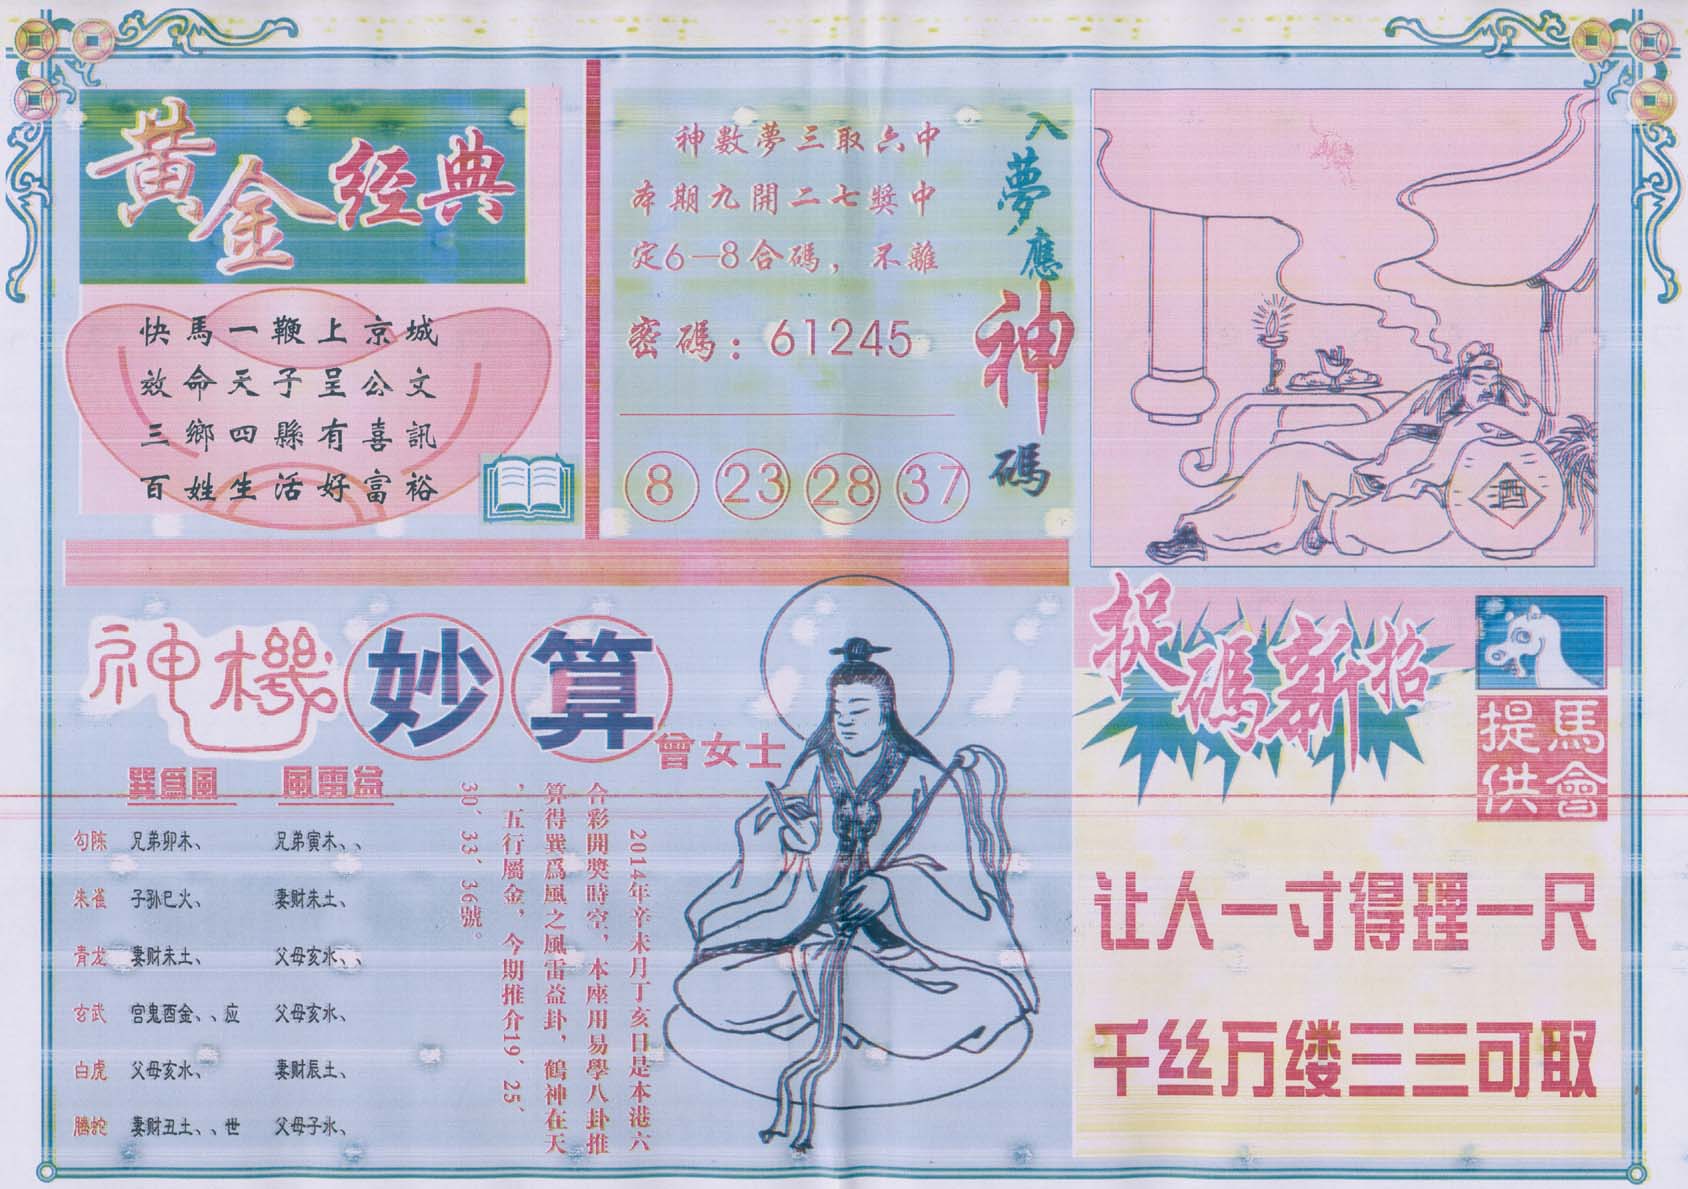 黄金经典
快馬一鞭上京城
效命天子呈公文
三鄉四縣有喜訊
百姓生活好富裕
神數夢三取六中
本期九開二七獎中
定6—8合碼，不離
密碼：61245
8 23 28 37
入夢應神碼
酒
神機妙算
曾女士
巽爲風 風雷益
勾陈 兄弟卯木、 兄弟寅木、、
朱雀 子孙巳火、 妻财未土、
青龙 妻财未土、 父母亥水、、
玄武 宫鬼酉金、、应 父母亥水、
白虎 父母亥水、 妻财辰土、
腾蛇 妻财丑土、、世 父母子水、
2014年辛未月丁亥日是本港六
合彩開獎時空，本座用易學八卦推
算得巽爲風之風雷益卦，鶴神在天
，五行屬金，今期推介19、25、
30、33、36號。
捉碼新招
馬會
提供
让人一寸得理一尺
千丝万缕三三可取